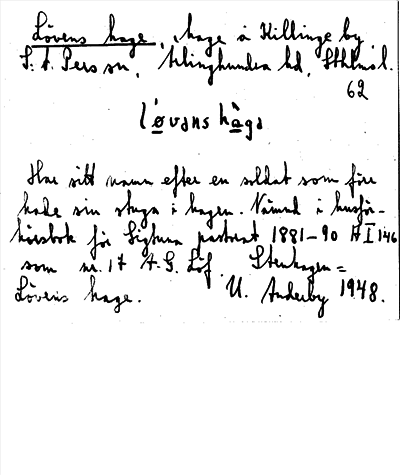 Lövens hage, hage å Killinge by
S:t Pers sn, Ärlinghundra hd, Sthlms l.
62
l'øvans hàga
Har sitt namn efter en soldat som före
hade sin stuga i hagen. Nämnd i husför-
hörsbok för Sigtuna pastorat 1881-90 A I 14b
som nr. 17 A. G. Löf. Stenhagen =
Lövens hage. U. Anderby 1948.